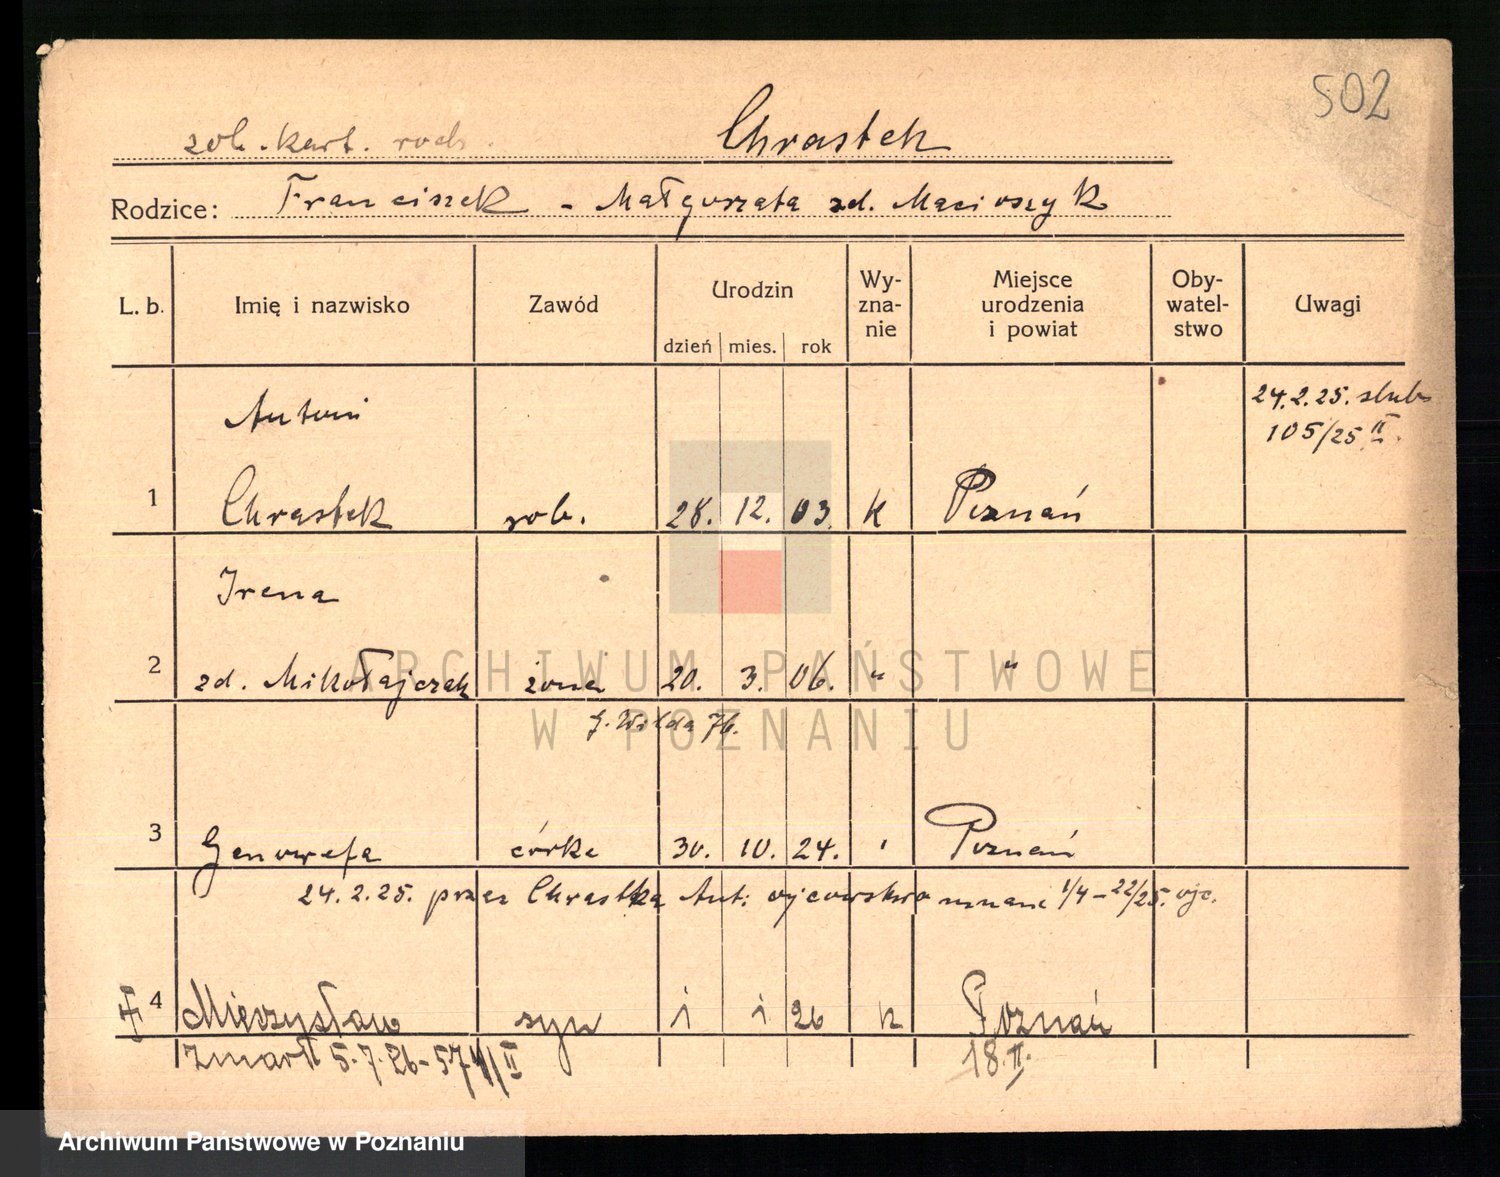 502
zob. kart. rodz.
Chrastek
Rodzice: Franciszek - Małgorzata zd. Macioszyk
L. b. Imię i nazwisko Zawód Urodzin dzień mies. rok Wy-zna-nie Miejsce urodzenia i powiat Oby-watel-stwo Uwagi
Antoni
24.2.25. slub
105/25 II.
1 Chrastek rob. 28. 12. 03. k Poznań
Irena
2 zd. Mikołajczak żona 20. 3. 06. " "
G. Wilda 76.
3 Genowefa córka 30. 10. 24. Poznań
24.2.25. przez Chrastka Ant. ojcowstwo uznane 1/4 - 22/25. ojc.
4 Mieczysław syn i i 26 k Poznań
zmarł 5.7.26 - 574/II
18.II.
ARCHIWUM PAŃSTWOWE
W POZNANIU
Archiwum Państwowe w Poznaniu